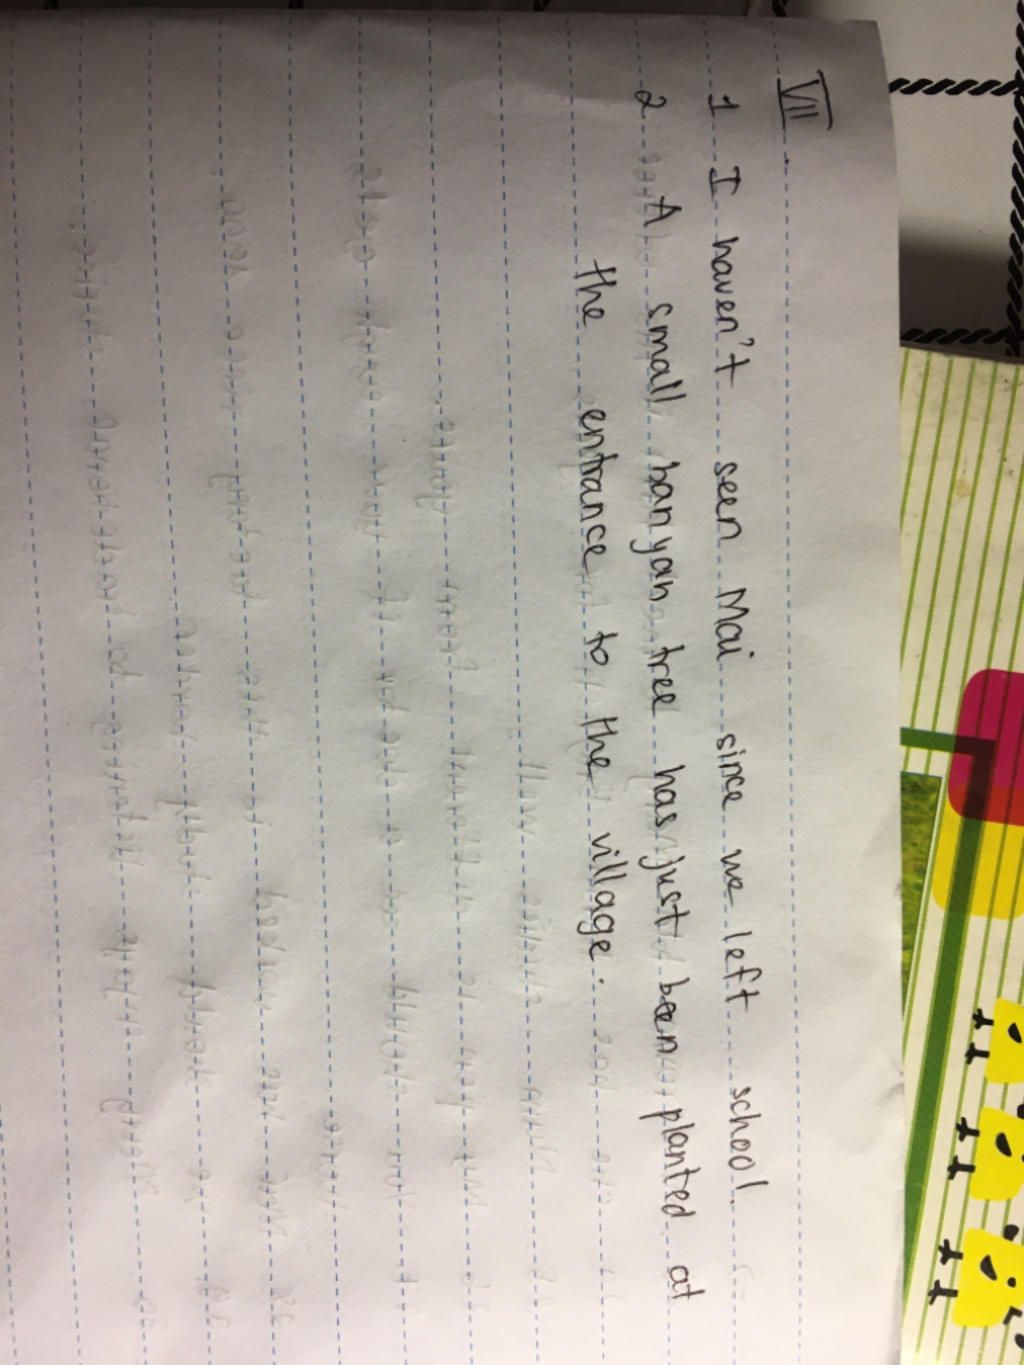 VII
1 I haven't seen Mai since we left school.
2 A small banyan tree has just been planted at
the entrance to the village.